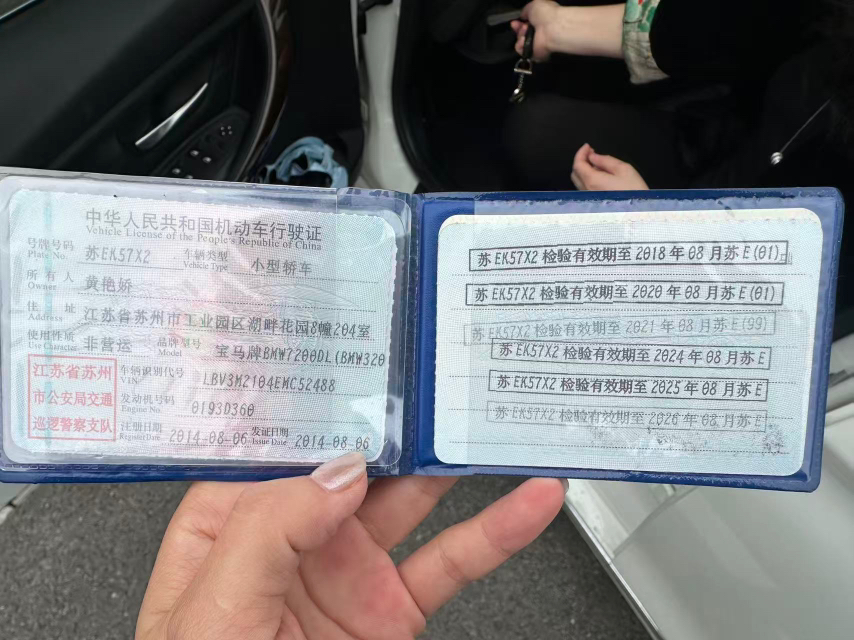 中华人民共和国机动车行驶证
Vehicle License of the People's Republic of China
号牌号码 苏EK57X2 车辆类型 小型轿车
Plate No. Vehicle Type
所有人 黄艳娇
Owner
住址 江苏省苏州市工业园区湖畔花园8幢204室
Address
使用性质 非营运 品牌型号 宝马牌BMW7200DL(BMW320
Use Character Model
江苏省苏州
市公安局交通
巡逻警察支队
车辆识别代号 LBV3M2104EMC52488
VIN
发动机号码 0193D360
Engine No.
注册日期 2014-08-06 发证日期 2014-08-06
Register Date Issue Date
苏EK57X2 检验有效期至 2018 年 08 月苏E(01)
苏EK57X2 检验有效期至 2020 年 08 月苏E(01)
苏EK57X2 检验有效期至 2021 年 08 月苏E(99)
苏EK57X2 检验有效期至 2024 年 08 月苏E
苏EK57X2 检验有效期至 2025 年 08 月苏E
苏EK57X2 检验有效期至 2026 年 08 月苏E